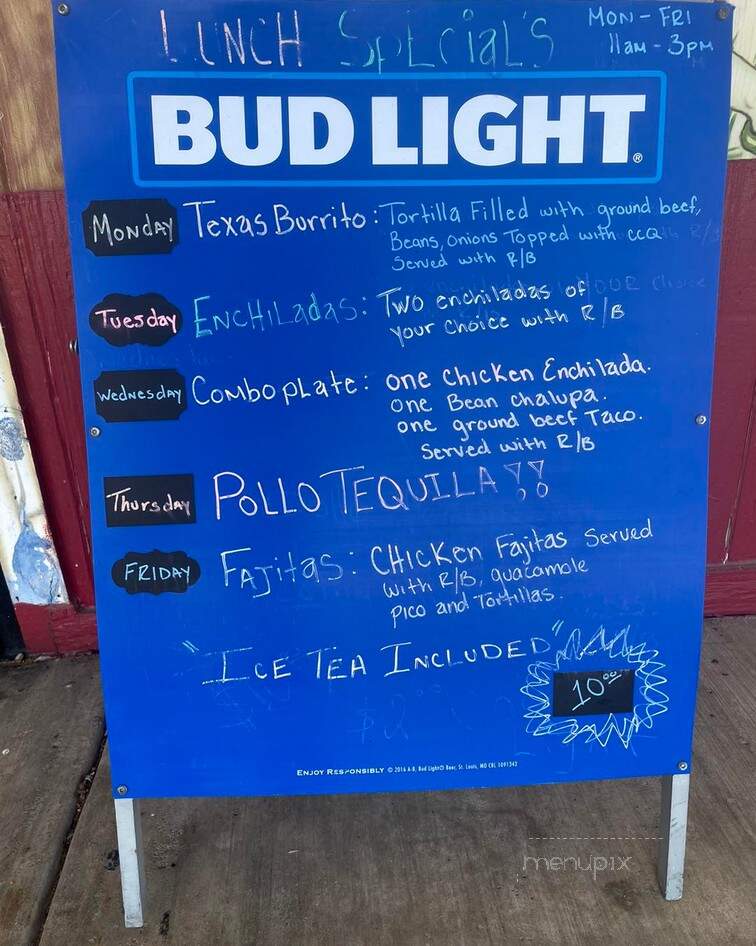 LUNCH SpEcial'S
MON - FRI
11am - 3pm
BUD LIGHT®
MONDAY
Texas Burrito: Tortilla Filled with ground beef,
Beans, onions Topped with CCQ
Served with R/B
Tuesday
ENCHiLadas: Two enchiladas of
your choice with R/B
Wednesday
Combo pLate: one Chicken Enchilada.
one Bean chalupa.
one ground beef Taco.
Served with R/B
Thursday
POLLO TEQUILA !!
FRIDAY
FAJitas: CHicken Fajitas Served
with R/B, guacamole
Pico and Tortillas.
"ICE TEA INCLUDED"
10.00
ENJOY RESPONSIBLY © 2016 A-B, Bud Light® Beer, St. Louis, MO
menupix